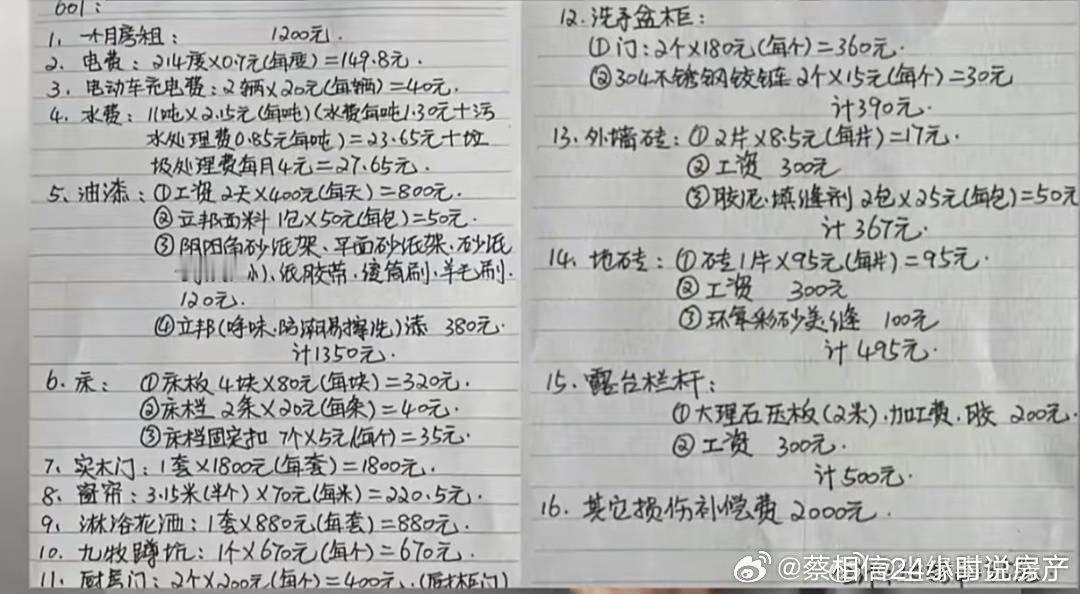 601:
1、一个月房租: 1200元.
2. 电费: 214度×0.7元(每度)=149.8元.
3. 电动车充电费: 2辆×20元(每辆)=40元.
4. 水费: 11吨×2.15元(每吨)(水费每吨1.30元+污
水处理费0.85元每吨)=23.65元+垃
圾处理费每月4元=27.65元.
5、油漆: ①工资 2天×400元(每天)=800元.
②立邦面料 1包×50元(每包)=50元.
③阴阳角砂纸架、平面砂纸架、砂纸
小、纸胶带、滚筒刷、羊毛刷.
120元.
④立邦(净味、防潮易擦洗)漆 380元.
计1350元.
6. 床: ①床板 4块×80元(每块)=320元.
②床档 2条×20元(每条)=40元.
③床档固定扣 7个×5元(每个)=35元.
7、实木门: 1套×1800元(每套)=1800元.
8、窗帘: 3.15米(半个)×70元(每米)=220.5元.
9、淋浴花洒: 1套×880元(每套)=880元.
10、九牧蹲坑: 1个×670元(每个)=670元.
11、厨房门: 2个×200元(每个)=400元.(厨柜门)
12. 洗手盆柜:
①门: 2个×180元(每个)=360元.
②304不锈钢铰链 2个×15元(每个)=30元
计390元.
13. 外墙砖: ①2片×8.5元(每片)=17元.
②工资 300元
③胶泥、填缝剂 2包×25元(每包)=50元
计367元.
14. 地砖: ①砖1片×95元(每片)=95元.
②工资 300元
③环氧彩砂美缝 100元
计495元.
15. 露台栏杆:
①大理石压板(2米).加工费.胶 200元.
②工资 300元.
计500元.
16. 其它损伤补偿费 2000元.
@蔡相信24缘时说房产